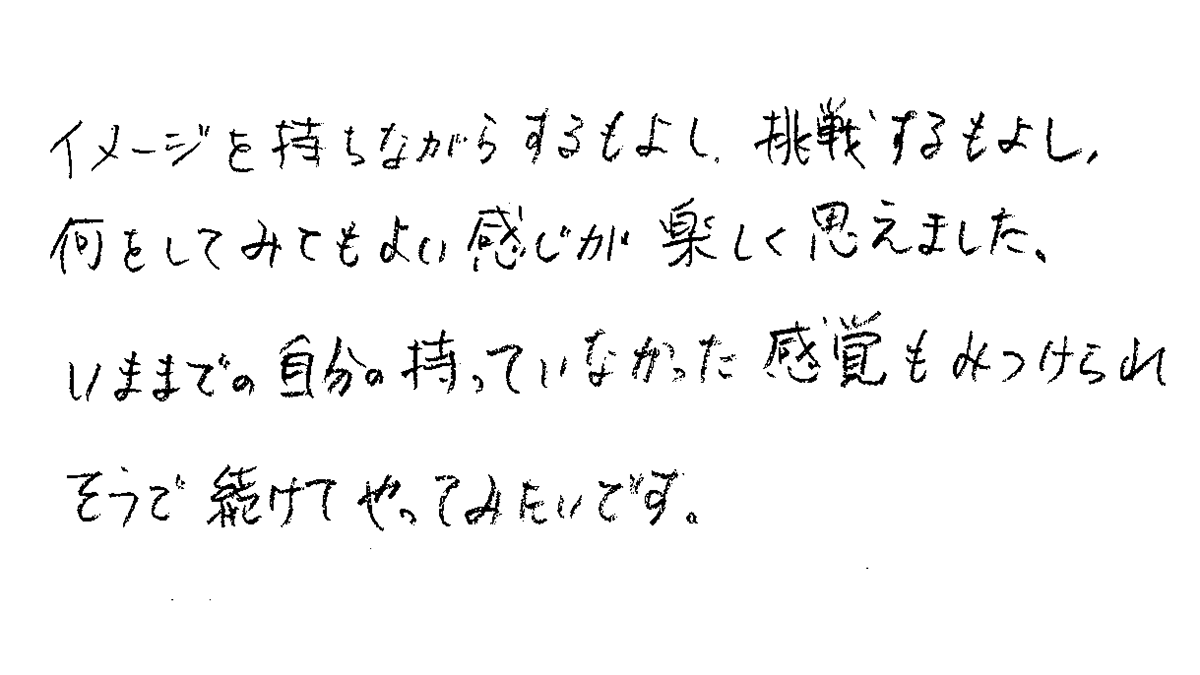 イメージを持ちながらするもよし、挑戦するもよし、
何をしてみてもよい感じが楽しく思えました、
いままでの自分の持っていなかった感覚もみつけられ
そうで続けてやってみたいです。